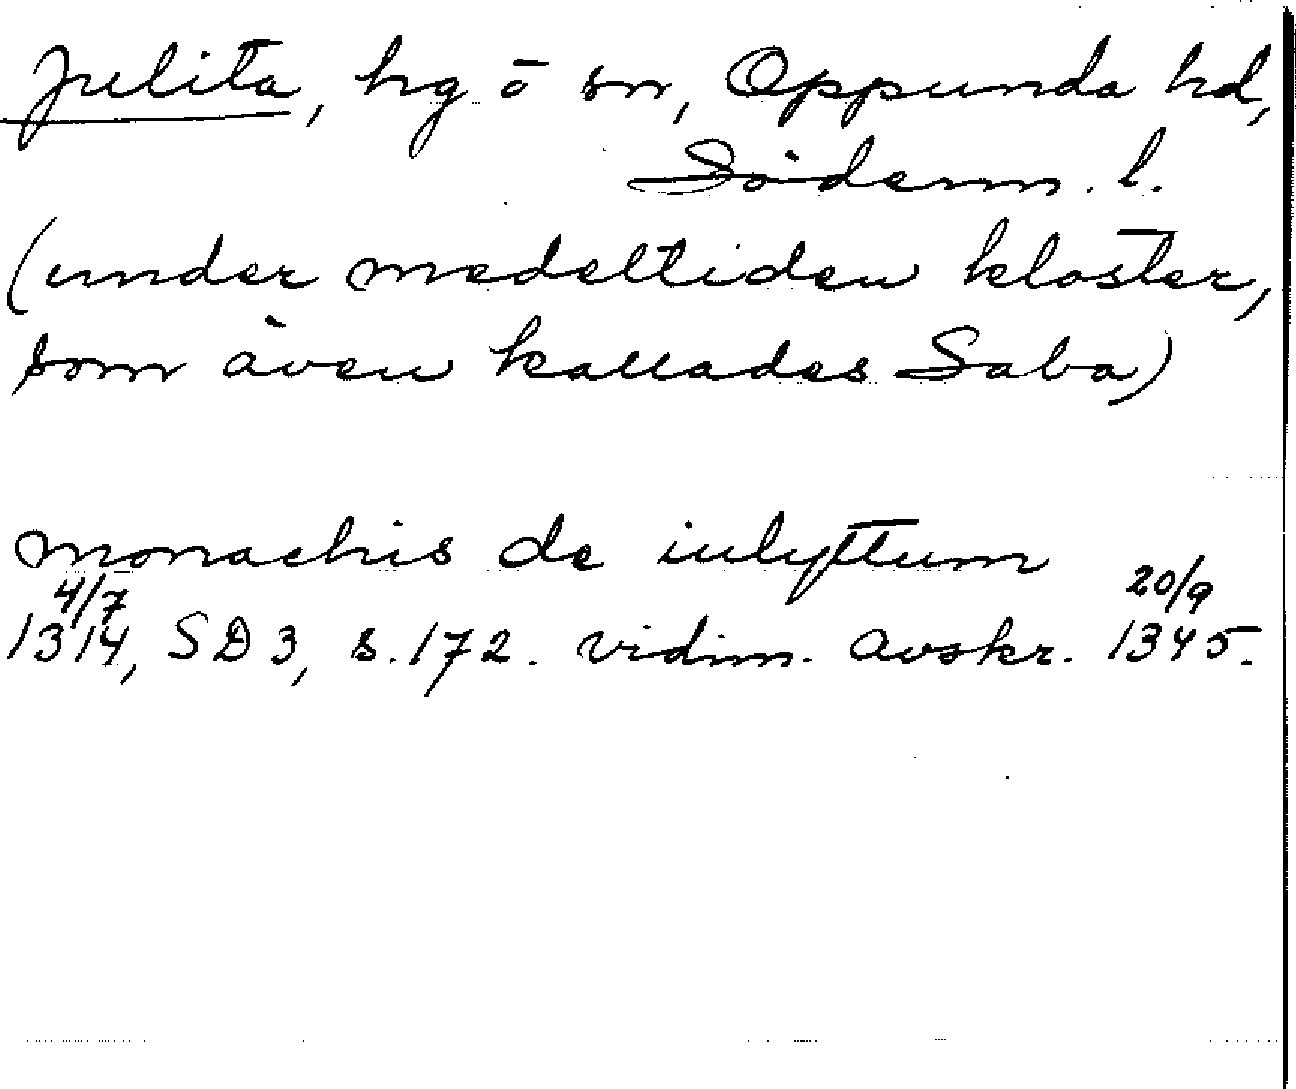 Julita, hg o sn, Oppunda hd,
Söderm. l.
(under medeltiden kloster,
som även kallades Saba)
monachis de iulyttum
4/7 20/9
1314, SD 3, s. 172. vidim. avskr. 1345.